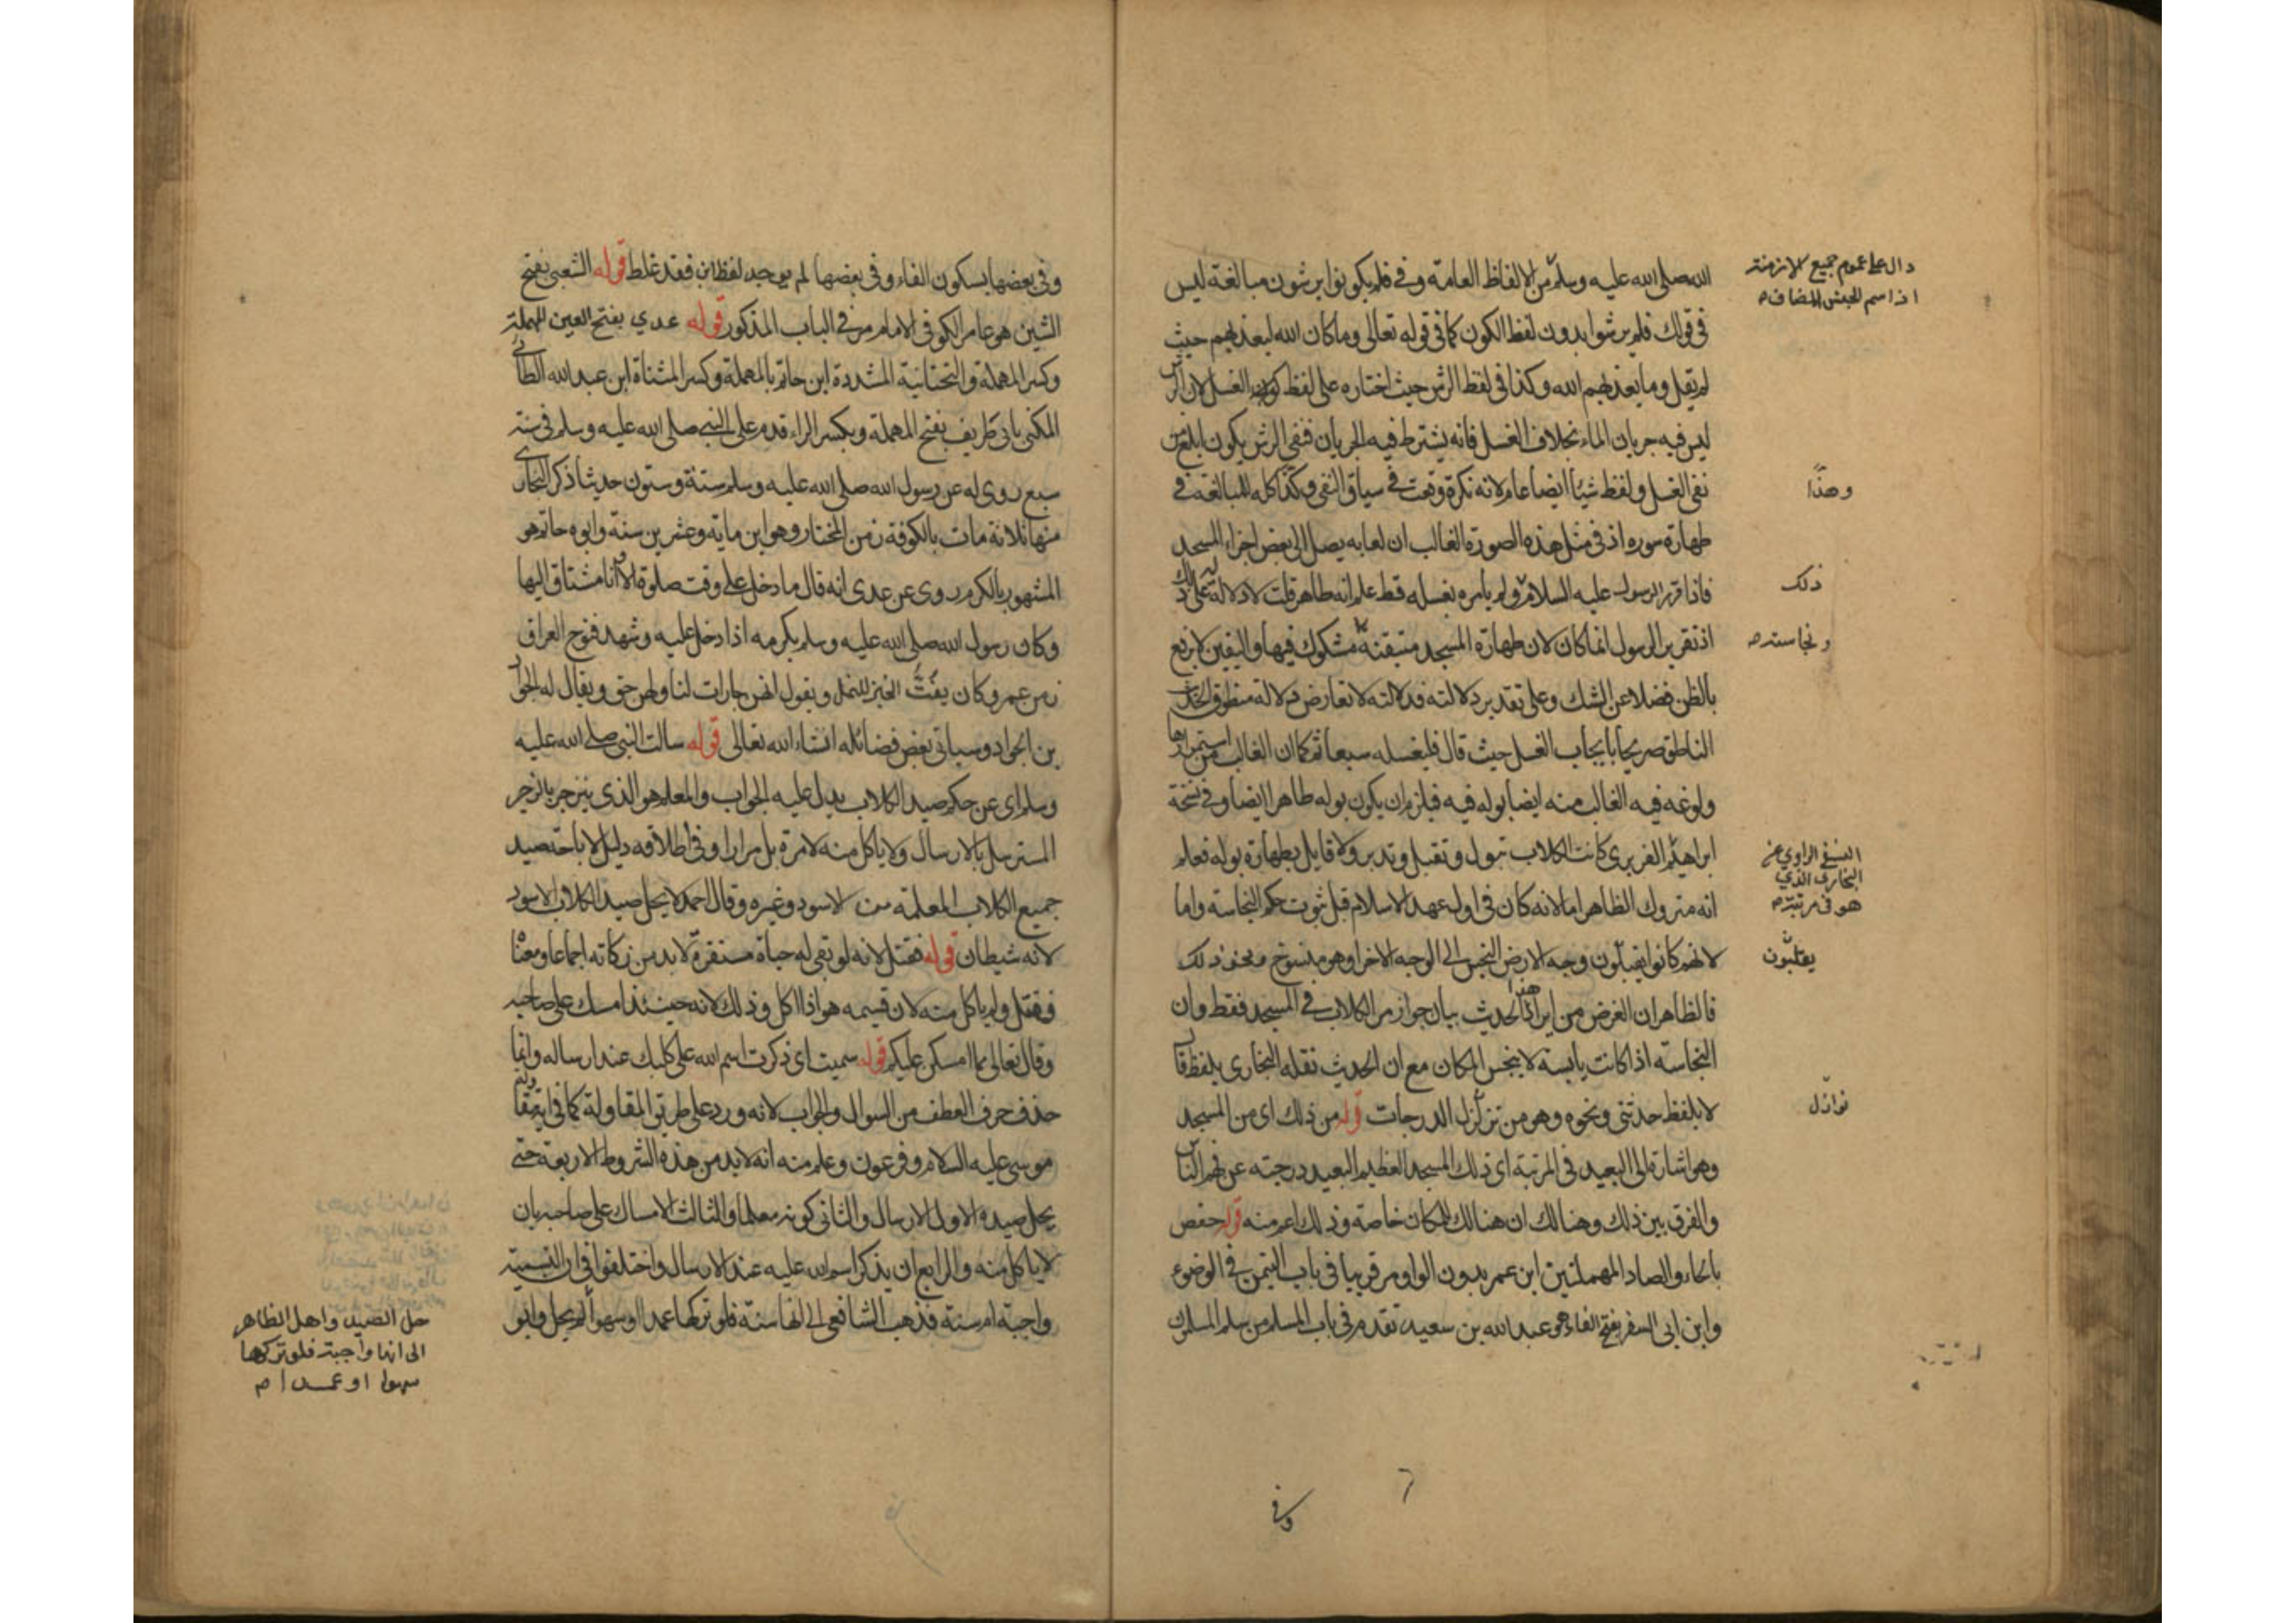 الله صلى الله عليه وسلم من الالفاظ العامة وفي فلم يكونوا يرشون مبالغة ليس
في قولك فلم يرشوا بدون لفظ الكون كما في قوله تعالى وما كان الله ليعذبهم حيث
لم يقل وما يعذبهم الله وكذا في لفظ الرش حيث اختاره على لفظ الغسل لان الرش
ليس فيه جريان الماء بخلاف الغسل فانه يشترط فيه الجريان فنفي الرش يكون ابلغ من
نفي الغسل ولفظ شيئا ايضا عام لانه نكرة وقعت في سياق النفي وكذا كله للمبالغة في
طهارة سوره اذ في مثل هذه الصورة الغالب ان لعابه يصل الى بعض اجزاء المسجد
فاذا قرر الرسول عليه السلام ولم يامره بغسله قط علم انه طاهر قلت لا دلالة له على ذلك
اذ تقرير الرسول انما كان لان طهارة المسجد متيقنة مشكوك فيها واليقين لا يرفع
بالظن فضلا عن الشك وعلى تقدير دلالته فدلالته لا تعارض دلالة منطوق الحديث
الناطق صريحا بايجاب الغسل حيث قال فليغسله سبعا ثم كما ان الغالب من استمرارها
ولوغه فيه الغالب منه ايضا بوله فيه فيلزم ان يكون بوله طاهرا ايضا وفي نسخة
ابراهيم الفربري كانت الكلاب تبول وتقبل وتدبر ولا قايل بطهارة بوله فعلم
انه متروك الظاهر اما لانه كان في اول عهد الاسلام قبل ثبوت حكم النجاسة واما
لانهم كانوا يقبلون وجه الارض النجس الى الوجه الاخر او هو منسوخ ونحو ذلك
فالظاهر ان الغرض من ايراد هذا الحديث بيان جواز مر الكلاب في المسجد فقط وان
النجاسة اذا كانت يابسة لا ينجس المكان مع ان الحديث نقله البخاري بلفظ قال
لا بلفظ حدثني ونحوه وهو من تنزل الدرجات قوله من ذلك اي من المسجد
وهو اشارة الى البعيد في المرتبة اي ذلك المسجد العظيم البعيد درجته عن فهم الناس
والفرق بين ذلك وهنالك ان هنالك للمكان خاصة وذلك اعم منه قوله حفص
بالحاء والصاد المهملتين ابن عمر بدون الواو مر قريبا في باب التيمن في الوضوء
وابن ابي السفر بفتح الفاء هو عبد الله بن سعيد تقدم في باب المسلم من سلم المسلمون
دال على عموم جميع الازمنة
اذ اسم الجنس المضاف
وهذا
ذلك
ونجاسته
النسفي الراوي عن
البخاري الذي
هو في مرتبته
يقلبون
نوازل
وفي
وفي بعضها بسكون الفاء وفي بعضها لم يوجد لفظ ابن فقد غلط قوله الشعبي بفتح
الشين هو عامر الكوفي الامام مر في الباب المذكور قوله عدي بفتح العين المهملة
وكسر المهملة والتحتانية المشددة ابن حاتم بالمهملة وكسر المثناة ابن عبد الله الطائي
المكنى بابي طريف بفتح المهملة وبكسر الراء قدم على النبي صلى الله عليه وسلم في سنة
سبع روي له عن رسول الله صلى الله عليه وسلم ستة وستون حديثا ذكر البخاري
منها ثلاثة مات بالكوفة زمن المختار وهو ابن ماية وعشرين سنة وابوه حاتم هو
المشهور بالكرم روى عن عدي انه قال ما دخل علي وقت صلوة الا وانا مشتاق اليها
وكان رسول الله صلى الله عليه وسلم يكرمه اذا دخل عليه وشهد فتوح العراق
زمن عمر وكان يفت الخبز للنمل ويقول انهن جارات لنا ولهن حق ويقال له الجواد
بن الجواد وسياتي بعض فضائله انشاء الله تعالى قوله سالت النبي صلى الله عليه
وسلم اي عن حكم صيد الكلاب يدل عليه الجواب والمعلم هو الذي ينزجر بالزجر
المسترسل بالارسال ولا ياكل منه لا مرة بل مرارا وفي اطلاقه دليل لاباحة صيد
جميع الكلاب المعلمة من الاسود وغيره وقال احمد لا يحل صيد الكلاب الاسود
لانه شيطان قوله فقتل لانه لو بقي له حياة مستقرة لا بد من زكاته اجماعا ومعنا
فقتل ولم ياكل منه لان قسيمه هو اذا اكل وذلك لانه حينئذ امسك على صاحبه
وقال تعالى مما امسكن عليكم قوله سميت اي ذكرت اسم الله على كلبك عند ارساله وانما
حذف حرف العطف من السوال والجواب لانه ورد على طريق المقاولة كما في اية مقاولة
موسى عليه السلام وفرعون وعلم منه انه لا بد من هذه الشروط الاربعة حتى
يحل صيده الاول الارسال والثاني كونه معلما والثالث الامساك على صاحبه بان
لا ياكل منه والرابع ان يذكر اسم الله عليه عند الارسال واختلفوا في ان التسمية
واجبة ام سنة فذهب الشافعي الى انها سنة فلو تركها عمدا او سهوا لم يحل وابو
حل الصيد واهل الظاهر
الى انها واجبة فلو تركها
سهوا او عمدا